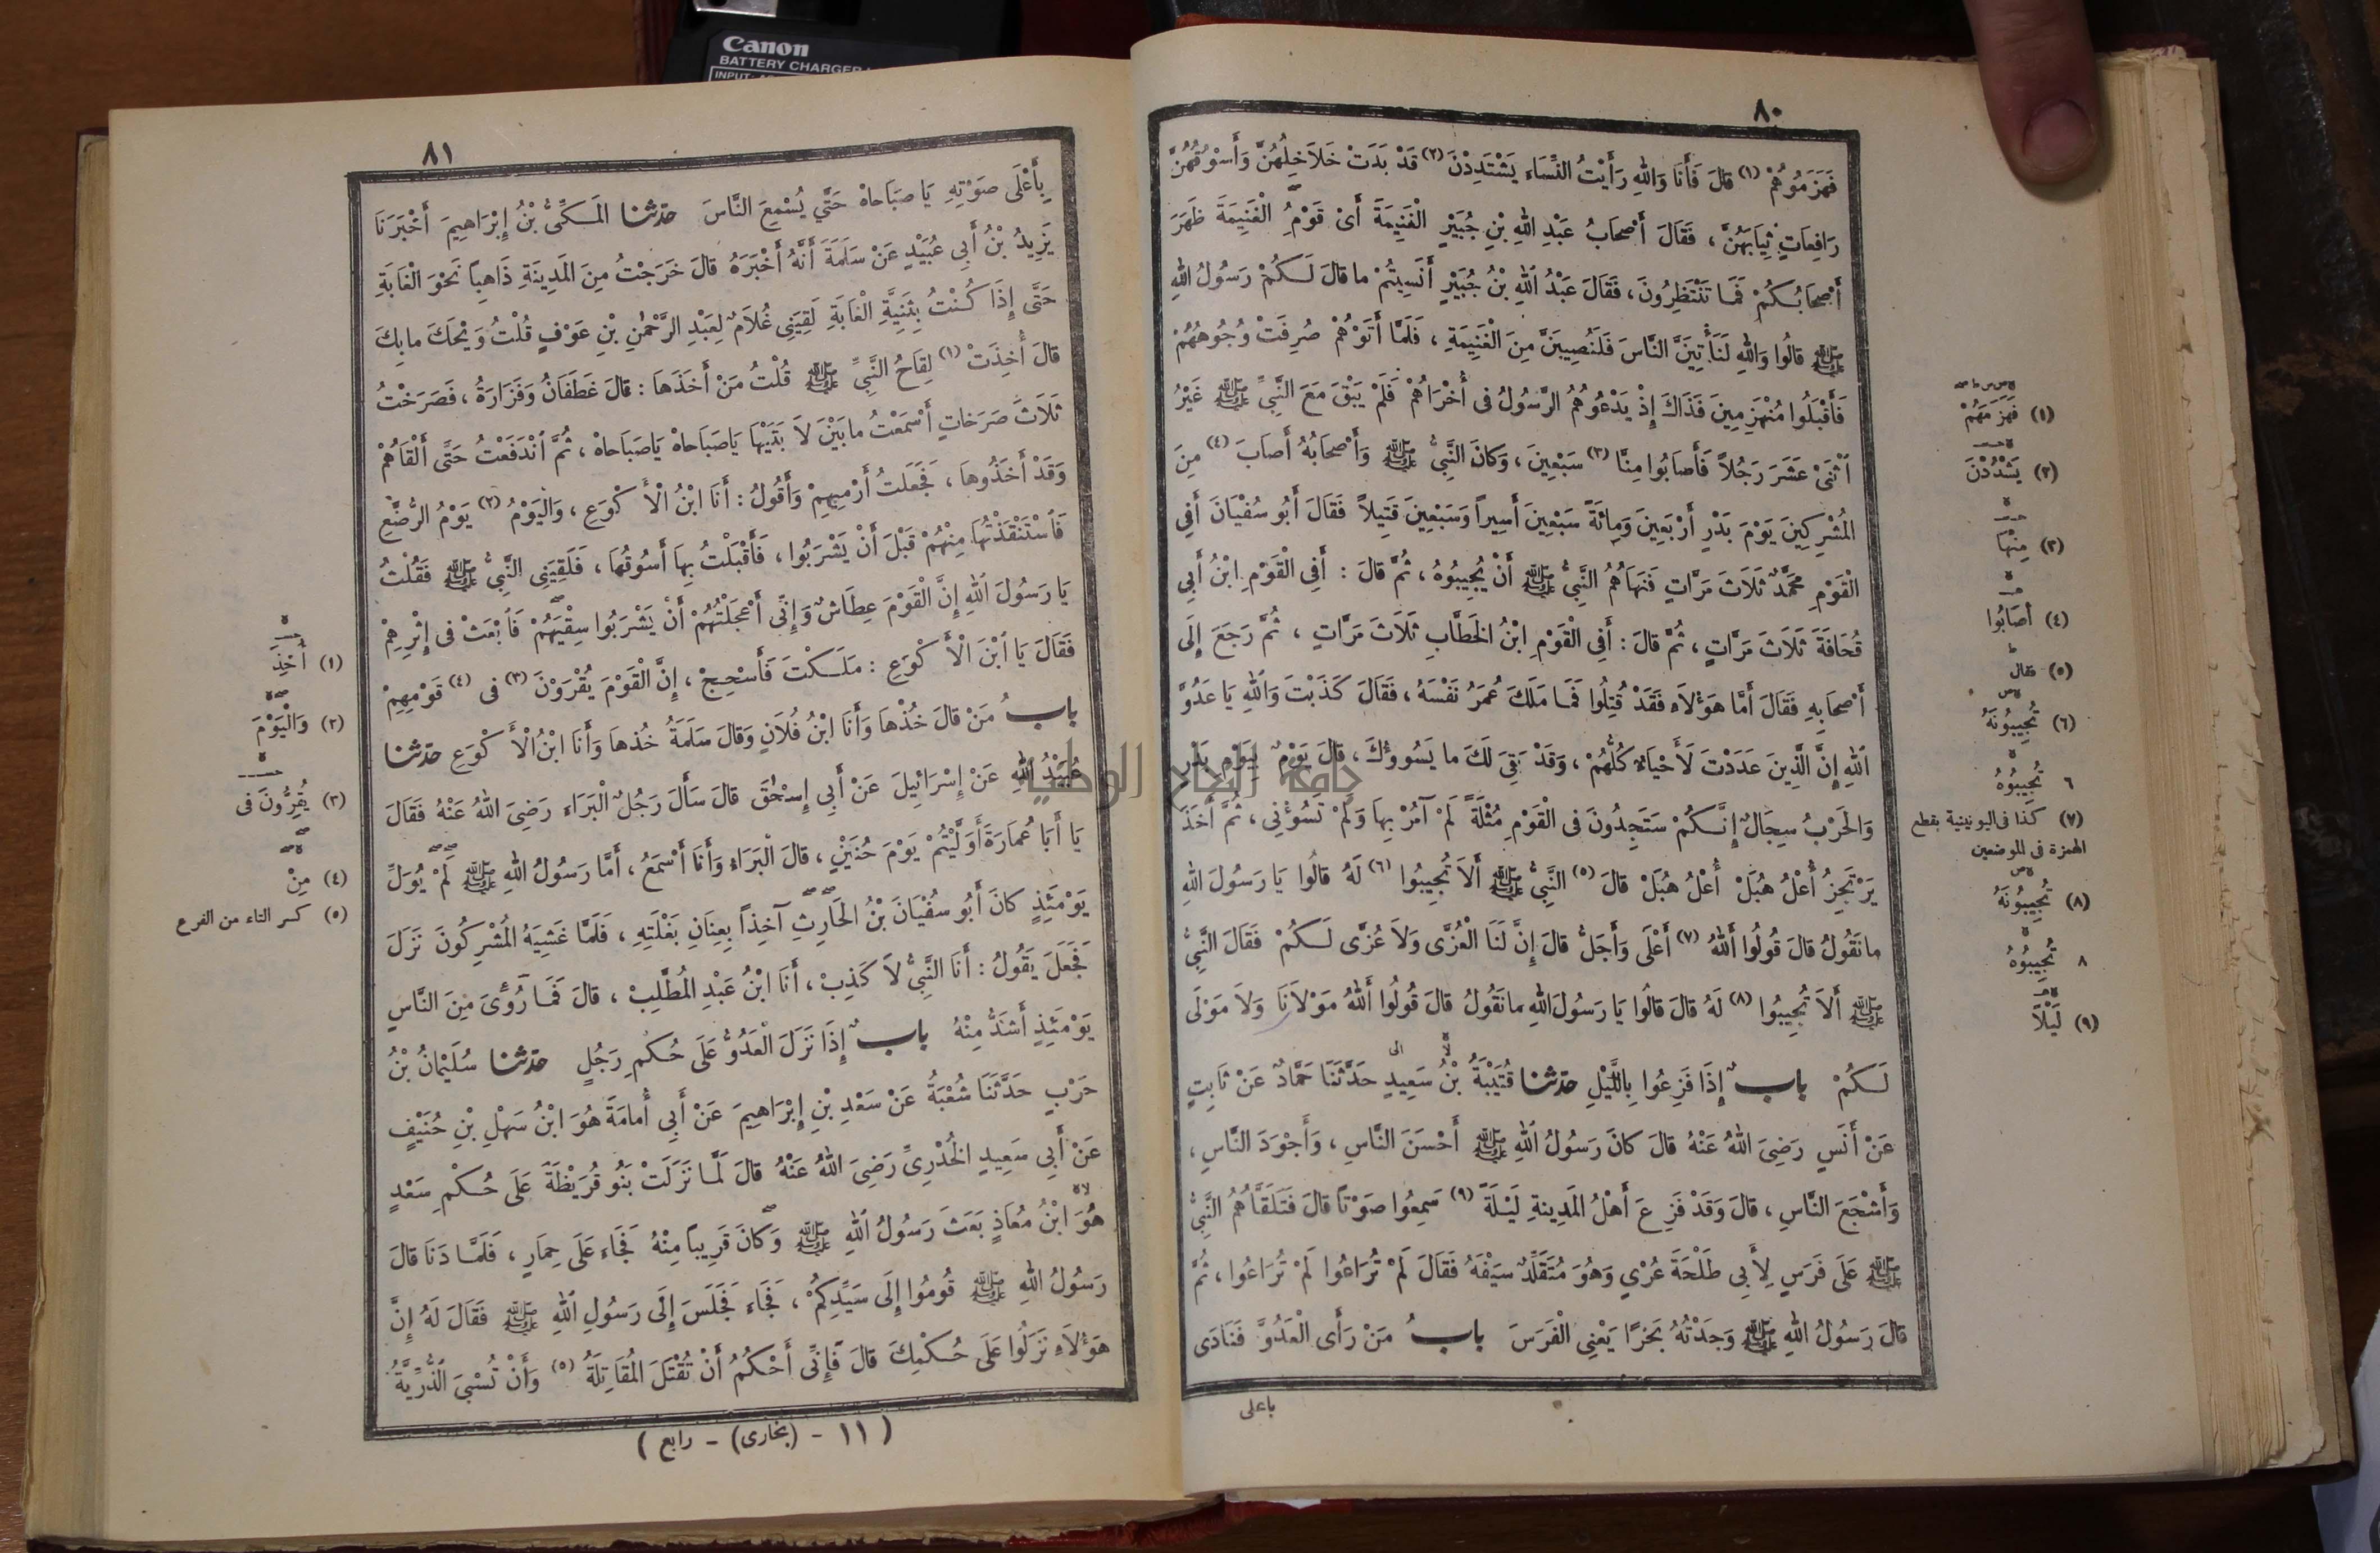 Canon
BATTERY CHARGER
INPUT:
٨٠
فَهَزَمُوهُمْ (١) قالَ فَأَنَا وَاللهِ رَأَيْتُ النِّسَاءَ يَشْتَدِدْنَ (٢) قَدْ بَدَتْ خَلاَخِلُهُنَّ وَأَسْوُقُهُنَّ
رَافِعَاتٍ ثِيَابَهُنَّ ، فَقَالَ أَصْحَابُ عَبْدِ اللهِ بْنِ جُبَيْرٍ الْغَنِيمَةَ أَىْ قَوْمِ الْغَنِيمَةَ ظَهَرَ
أَصْحَابُكُمْ فَمَا تَنْتَظِرُونَ ، فَقَالَ عَبْدُ اللهِ بْنُ جُبَيْرٍ أَنَسِيتُمْ ما قالَ لَكُمْ رَسُولُ اللهِ
ﷺ قالُوا وَاللهِ لَنَأْتِيَنَّ النَّاسَ فَلَنُصِيبَنَّ مِنَ الْغَنِيمَةِ ، فَلَمَّا أَتَوْهُمْ صُرِفَتْ وُجُوهُهُمْ
فَأَقْبَلُوا مُنْهَزِمِينَ فَذَاكَ إِذْ يَدْعُوهُمُ الرَّسُولُ فى أُخْرَاهُمْ فَلَمْ يَبْقَ مَعَ النَّبِىِّ ﷺ غَيْرُ
اثْنَىْ عَشَرَ رَجُلاً فَأَصَابُوا مِنَّا (٣) سَبْعِينَ ، وَكانَ النَّبِىُّ ﷺ وَأَصْحَابُهُ أَصَابَ (٤) مِنَ
الْمُشْرِكِينَ يَوْمَ بَدْرٍ أَرْبَعِينَ وَمِائَةً سَبْعِينَ أَسِيراً وَسَبْعِينَ قَتِيلاً فَقَالَ أَبُو سُفْيَانَ أَفِى
الْقَوْمِ مُحَمَّدٌ ثَلاَثَ مَرَّاتٍ فَنَهَاهُمُ النَّبِىُّ ﷺ أَنْ يُجِيبُوهُ ، ثُمَّ قالَ : أَفِى الْقَوْمِ ابْنُ أَبِى
قُحَافَةَ ثَلاَثَ مَرَّاتٍ ، ثُمَّ قالَ : أَفِى الْقَوْمِ ابْنُ الْخَطَّابِ ثَلاَثَ مَرَّاتٍ ، ثُمَّ رَجَعَ إِلَى
أَصْحَابِهِ فَقَالَ أَمَّا هٰؤُلاَءِ فَقَدْ قُتِلُوا فَمَا مَلَكَ عُمَرُ نَفْسَهُ ، فَقَالَ كَذَبْتَ وَاللهِ يَا عَدُوَّ
اللهِ إِنَّ الَّذِينَ عَدَدْتَ لَأَحْيَاءٌ كُلُّهُمْ ، وَقَدْ بَقِىَ لَكَ ما يَسُوؤُكَ ، قالَ يَوْمٌ بِيَوْمِ بَدْرٍ
وَالْحَرْبُ سِجَالٌ إِنَّكُمْ سَتَجِدُونَ فى الْقَوْمِ مُثْلَةً لَمْ آمُرْ بِهَا وَلَمْ تَسُؤْنِى ، ثُمَّ أَخَذَ
يَرْتَجِزُ أُعْلُ هُبَلْ أُعْلُ هُبَلْ قالَ (٥) النَّبِىُّ ﷺ أَلاَ تُجِيبُوا (٦) لَهُ قالُوا يَا رَسُولَ اللهِ
ما نَقُولُ قالَ قُولُوا اللهُ (٧) أَعْلَى وَأَجَلُّ قالَ إِنَّ لَنَا الْعُزَّى وَلاَ عُزَّى لَكُمْ فَقَالَ النَّبِىُّ
ﷺ أَلاَ تُجِيبُوا (٨) لَهُ قالَ قالُوا يَا رَسُولَ اللهِ ما نَقُولُ قالَ قُولُوا اللهُ مَوْلاَنَا وَلاَ مَوْلَى
لَكُمْ بابٌ إِذَا فَزِعُوا بِاللَّيْلِ حدّثنا قُتَيْبَةُ بْنُ سَعِيدٍ حَدَّثَنَا حَمَّادٌ عَنْ ثَابِتٍ
عَنْ أَنَسٍ رَضِىَ اللهُ عَنْهُ قالَ كانَ رَسُولُ اللهِ ﷺ أَحْسَنَ النَّاسِ ، وَأَجْوَدَ النَّاسِ ،
وَأَشْجَعَ النَّاسِ ، قالَ وَقَدْ فَزِعَ أَهْلُ الْمَدِينَةِ لَيْلَةً (٩) سَمِعُوا صَوْتاً قالَ فَتَلَقَّاهُمُ النَّبِىُّ
ﷺ عَلَى فَرَسٍ لِأَبِى طَلْحَةَ عُرْيٍ وَهُوَ مُتَقَلِّدٌ سَيْفَهُ فَقَالَ لَمْ تُرَاعُوا لَمْ تُرَاعُوا ، ثُمَّ
قالَ رَسُولُ اللهِ ﷺ وَجَدْتُهُ بَحْرًا يَعْنِى الْفَرَسَ بابُ مَنْ رَأَى الْعَدُوَّ فَنَادَى
باعلى
(١) فَهَزَمَهُمْ
(٢) يَشْدُدْنَ
(٣) مِنْهَا
(٤) أَصَابُوا
(٥) فقال
(٦) تُجِيبُونَهُ
٦ تُجِيبُوهُ
(٧) كذا فى اليونينية بقطع
الهمزة فى الموضعين
(٨) تُجِيبُونَهُ
٨ تُجِيبُوهُ
(٩) لَيْلاً
٨١
بِأَعْلَى صَوْتِهِ يَا صَبَاحاهْ حَتَّى يُسْمِعَ النَّاسَ حدّثنا الْمَكِّىُّ بْنُ إِبْرَاهِيمَ أَخْبَرَنَا
يَزِيدُ بْنُ أَبِى عُبَيْدٍ عَنْ سَلَمَةَ أَنَّهُ أَخْبَرَهُ قالَ خَرَجْتُ مِنَ الْمَدِينَةِ ذَاهِباً نَحْوَ الْغَابَةِ
حَتَّى إِذَا كُنْتُ بِثَنِيَّةِ الْغَابَةِ لَقِيَنِى غُلاَمٌ لِعَبْدِ الرَّحْمٰنِ بْنِ عَوْفٍ قُلْتُ وَيْحَكَ ما بِكَ
قالَ أُخِذَتْ (١) لِقَاحُ النَّبِىِّ ﷺ قُلْتُ مَنْ أَخَذَهَا : قالَ غَطَفَانُ وَفَزَارَةُ ، فَصَرَخْتُ
ثَلاَثَ صَرَخاتٍ أَسْمَعْتُ ما بَيْنَ لاَبَتَيْهَا يَا صَبَاحاهْ يَا صَبَاحاهْ ، ثُمَّ انْدَفَعْتُ حَتَّى أَلْقَاهُمْ
وَقَدْ أَخَذُوهَا ، فَجَعَلْتُ أَرْمِيهِمْ وَأَقُولُ : أَنَا ابْنُ الْأَكْوَعِ ، وَالْيَوْمُ (٢) يَوْمُ الرُّضَّعِ
فَاسْتَنْقَذْتُهَا مِنْهُمْ قَبْلَ أَنْ يَشْرَبُوا ، فَأَقْبَلْتُ بِهَا أَسُوقُهَا ، فَلَقِيَنِى النَّبِىُّ ﷺ فَقُلْتُ
يَا رَسُولَ اللهِ إِنَّ الْقَوْمَ عِطَاشٌ وَإِنِّى أَعْجَلْتُهُمْ أَنْ يَشْرَبُوا سِقْيَهُمْ فَابْعَثْ فى إِثْرِهِمْ
فَقَالَ يَا ابْنَ الْأَكْوَعِ : مَلَكْتَ فَأَسْجِحْ ، إِنَّ الْقَوْمَ يُقْرَوْنَ (٣) فى (٤) قَوْمِهِمْ
بابُ مَنْ قالَ خُذْهَا وَأَنَا ابْنُ فُلاَنٍ وَقالَ سَلَمَةُ خُذْهَا وَأَنَا ابْنُ الْأَكْوَعِ حدّثنا
عُبَيْدُ اللهِ عَنْ إِسْرَائِيلَ عَنْ أَبِى إِسْحٰقَ قالَ سَأَلَ رَجُلٌ الْبَرَاءَ رَضِىَ اللهُ عَنْهُ فَقَالَ
يَا أَبَا عُمَارَةَ أَوَلَّيْتُمْ يَوْمَ حُنَيْنٍ ، قالَ الْبَرَاءُ وَأَنَا أَسْمَعُ ، أَمَّا رَسُولُ اللهِ ﷺ لَمْ يُوَلِّ
يَوْمَئِذٍ كانَ أَبُو سُفْيَانَ بْنُ الْحَارِثِ آخِذاً بِعِنَانِ بَغْلَتِهِ ، فَلَمَّا غَشِيَهُ الْمُشْرِكُونَ نَزَلَ
فَجَعَلَ يَقُولُ : أَنَا النَّبِىُّ لاَ كَذِبْ ، أَنَا ابْنُ عَبْدِ الْمُطَّلِبْ ، قالَ فَمَا رُؤِىَ مِنَ النَّاسِ
يَوْمَئِذٍ أَشَدُّ مِنْهُ بابٌ إِذَا نَزَلَ الْعَدُوُّ عَلَى حُكْمِ رَجُلٍ حدّثنا سُلَيْمَانُ بْنُ
حَرْبٍ حَدَّثَنَا شُعْبَةُ عَنْ سَعْدِ بْنِ إِبْرَاهِيمَ عَنْ أَبِى أُمامَةَ هُوَ ابْنُ سَهْلِ بْنِ حُنَيْفٍ
عَنْ أَبِى سَعِيدٍ الْخُدْرِىِّ رَضِىَ اللهُ عَنْهُ قالَ لَمَّا نَزَلَتْ بَنُو قُرَيْظَةَ عَلَى حُكْمِ سَعْدٍ
هُوَ ابْنُ مُعَاذٍ بَعَثَ رَسُولُ اللهِ ﷺ وَكانَ قَرِيباً مِنْهُ فَجَاءَ عَلَى حِمَارٍ ، فَلَمَّا دَنَا قالَ
رَسُولُ اللهِ ﷺ قُومُوا إِلَى سَيِّدِكُمْ ، فَجَاءَ فَجَلَسَ إِلَى رَسُولِ اللهِ ﷺ فَقَالَ لَهُ إِنَّ
هٰؤُلاَءِ نَزَلُوا عَلَى حُكْمِكَ قالَ فَإِنِّى أَحْكُمُ أَنْ تُقْتَلَ الْمُقَاتِلَةُ (٥) وَأَنْ تُسْبَى الذُّرِّيَّةُ
( ١١ - (بخارى) - رابع )
(١) أُخِذَ
(٢) وَالْيَوْمَ
(٣) يُقِرُّونَ فى
(٤) مِنْ
(٥) كسر التاء من الفرع
جامعة النجاح الوطنية